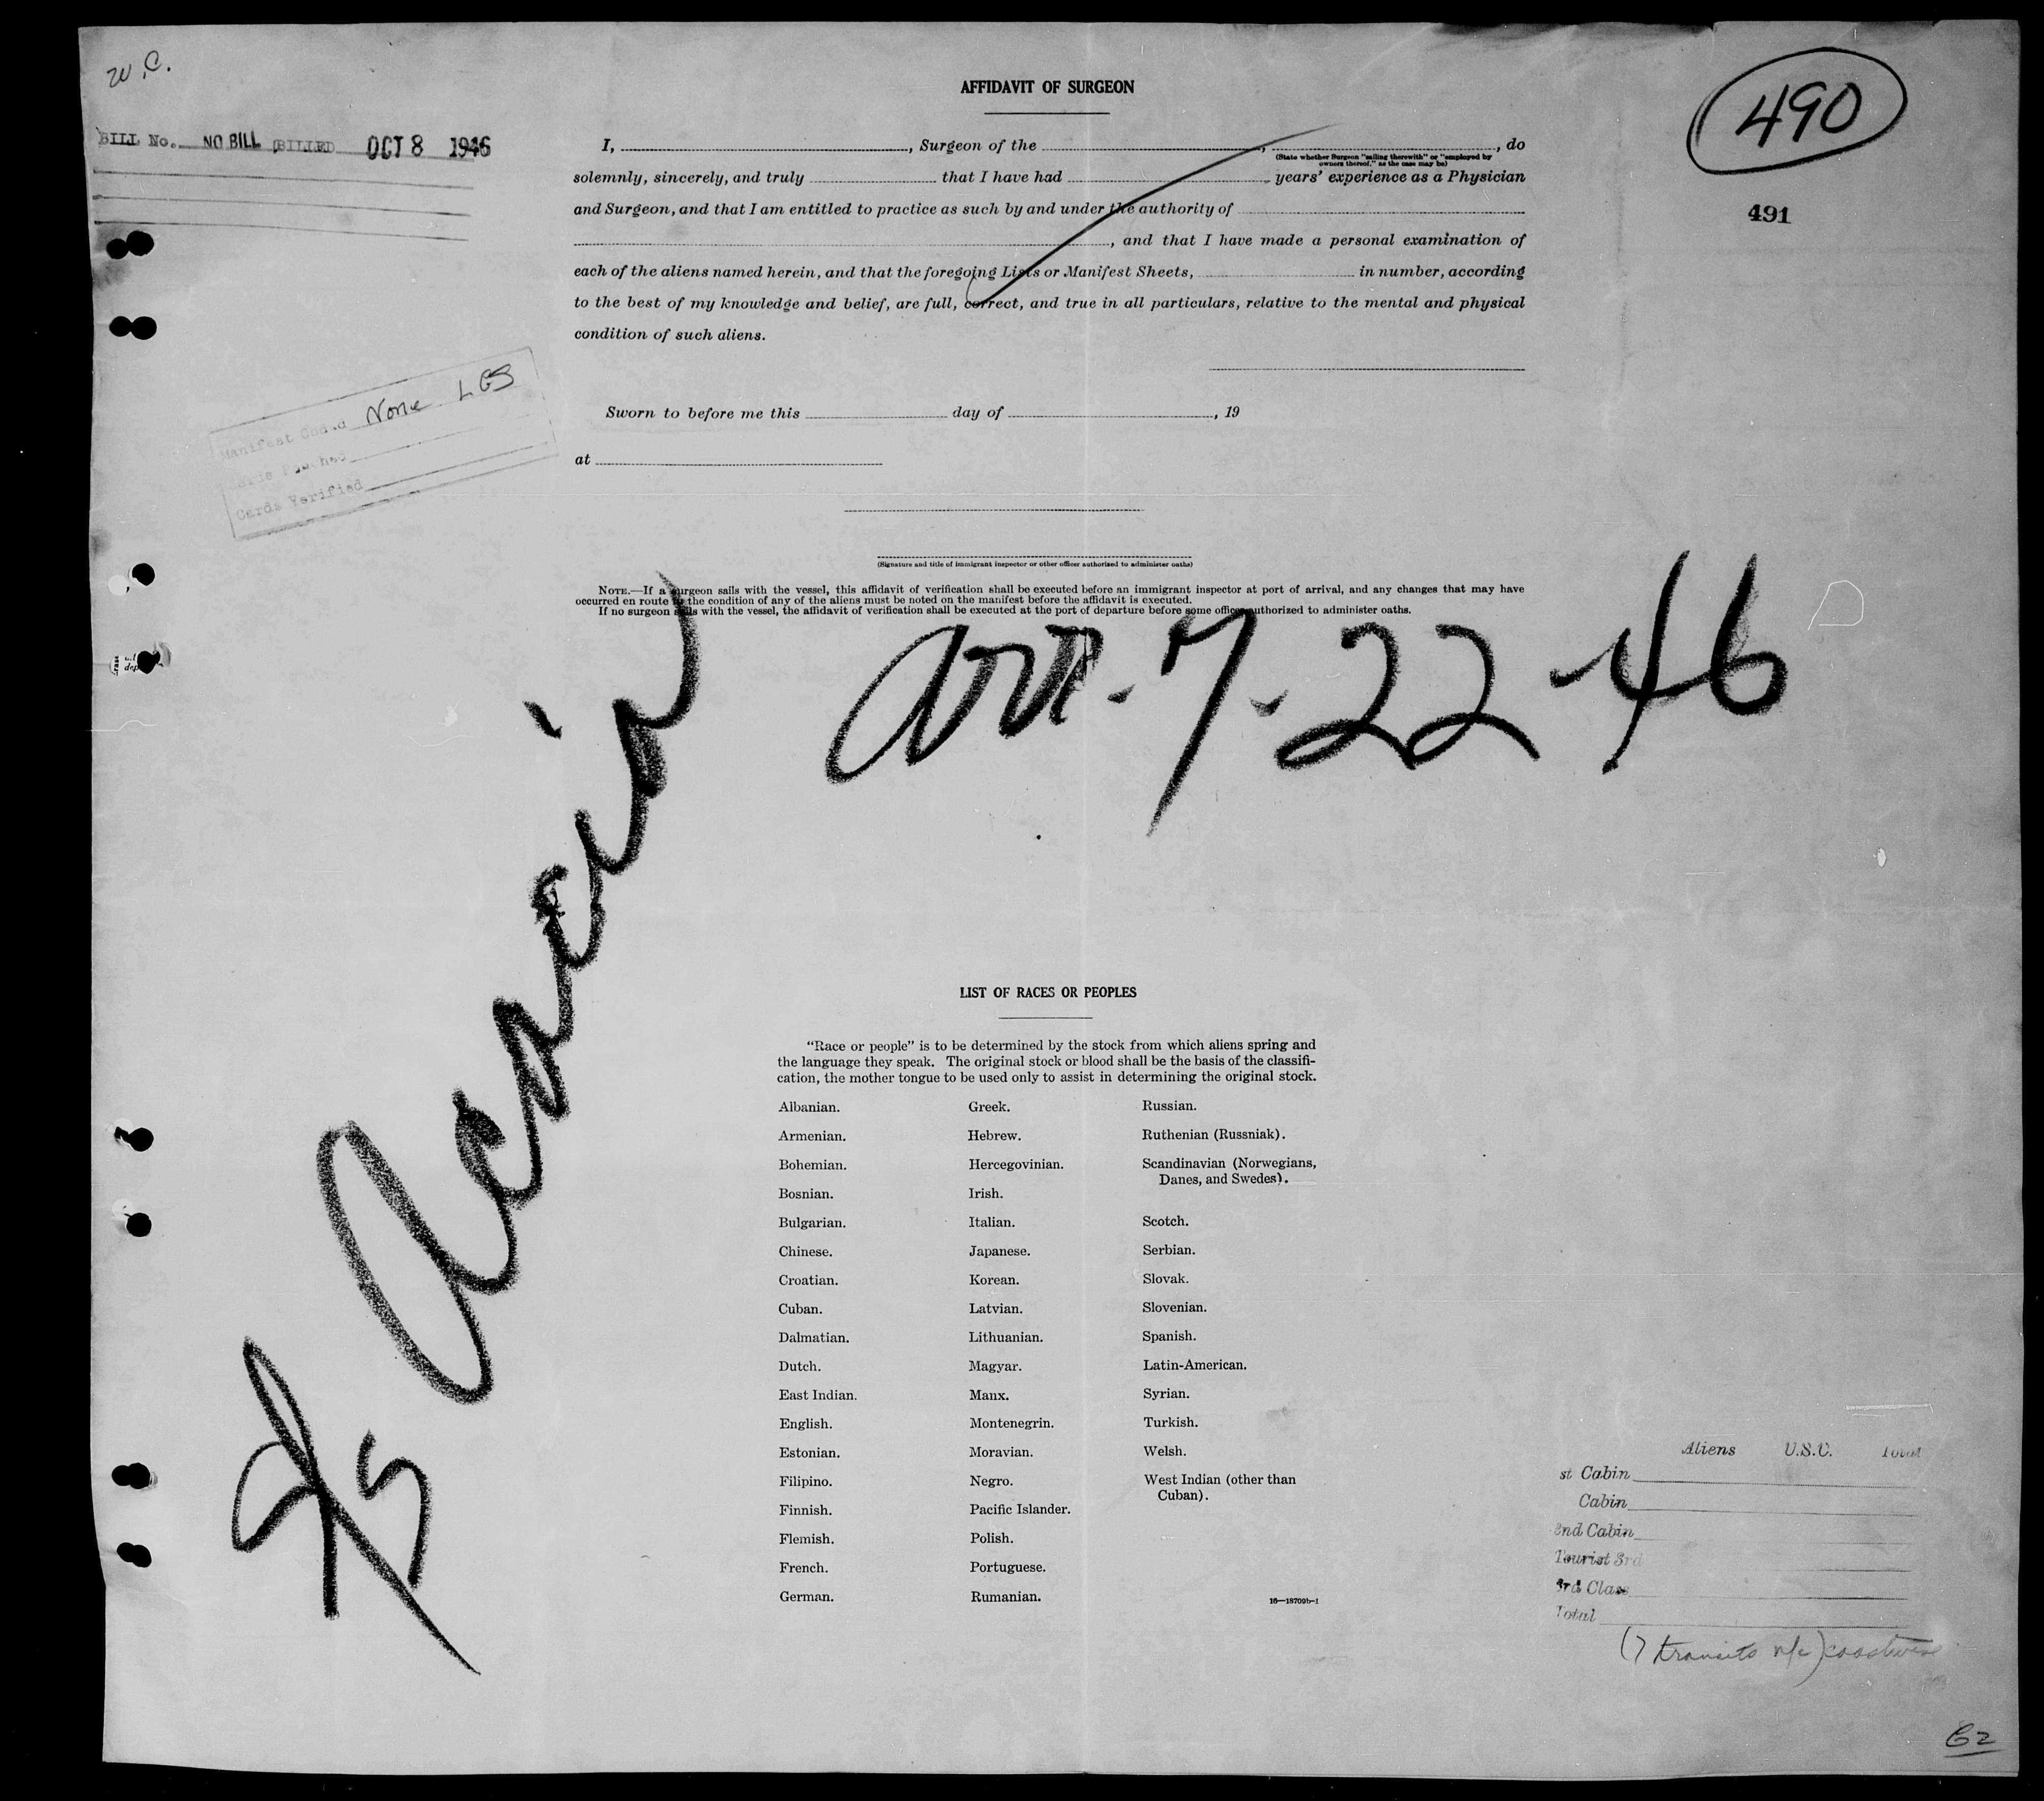 W.C.
BILL No. NO BILL BILLED OCT 8 1946
490
491
AFFIDAVIT OF SURGEON
I, , Surgeon of the , , do
(State whether Surgeon "sailing therewith" or "employed by
owners thereof," as the case may be)
solemnly, sincerely, and truly that I have had years' experience as a Physician
and Surgeon, and that I am entitled to practice as such by and under the authority of
, and that I have made a personal examination of
each of the aliens named herein, and that the foregoing Lists or Manifest Sheets, in number, according
to the best of my knowledge and belief, are full, correct, and true in all particulars, relative to the mental and physical
condition of such aliens.
Manifest None LGS
Cards Verified
Sworn to before me this day of , 19
at
(Signature and title of immigrant inspector or other officer authorized to administer oaths)
NOTE.—If a surgeon sails with the vessel, this affidavit of verification shall be executed before an immigrant inspector at port of arrival, and any changes that may have
occurred en route in the condition of any of the aliens must be noted on the manifest before the affidavit is executed.
If no surgeon sails with the vessel, the affidavit of verification shall be executed at the port of departure before some officer authorized to administer oaths.
arr. 7-22-46
S/S Acacia
LIST OF RACES OR PEOPLES
"Race or people" is to be determined by the stock from which aliens spring and
the language they speak. The original stock or blood shall be the basis of the classifi-
cation, the mother tongue to be used only to assist in determining the original stock.
Albanian.
Armenian.
Bohemian.
Bosnian.
Bulgarian.
Chinese.
Croatian.
Cuban.
Dalmatian.
Dutch.
East Indian.
English.
Estonian.
Filipino.
Finnish.
Flemish.
French.
German.
Greek.
Hebrew.
Hercegovinian.
Irish.
Italian.
Japanese.
Korean.
Latvian.
Lithuanian.
Magyar.
Manx.
Montenegrin.
Moravian.
Negro.
Pacific Islander.
Polish.
Portuguese.
Rumanian.
Russian.
Ruthenian (Russniak).
Scandinavian (Norwegians,
Danes, and Swedes).
Scotch.
Serbian.
Slovak.
Slovenian.
Spanish.
Latin-American.
Syrian.
Turkish.
Welsh.
West Indian (other than
Cuban).
16—18709b-1
Aliens U.S.C. Total
st Cabin
Cabin
2nd Cabin
Tourist 3rd
3rd Class
Total
(7 transits n/c) coastwise
62